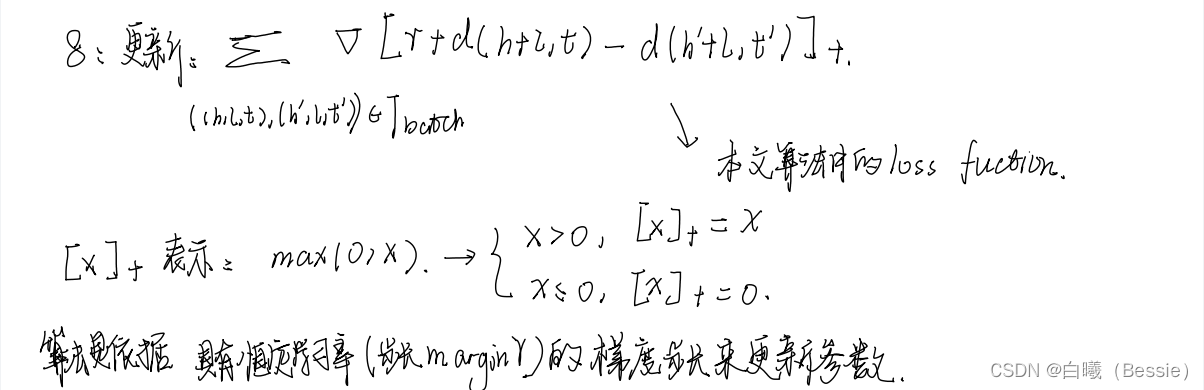 8: 更新: ∑ ∇ [γ + d(h+l, t) − d(h'+l, t')]₊.
((h,l,t),(h',l,t')) ∈ Tbatch
本文算法中的loss fuction.
[x]₊ 表示: max(0, x). → { x>0, [x]₊ = x
x≤0, [x]₊ = 0.
算法是依据 具有恒定学习率(步长marginγ)的梯度步长来更新参数.
CSDN @白曦（Bessie）